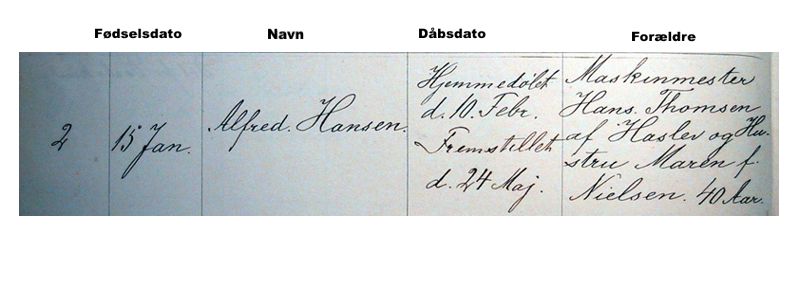 Fødselsdato Navn Dåbsdato Forældre
2
15 Jan.
Alfred. Hansen.
Hjemmedøbt
d. 10. Febr.
Fremstillet
d. 24 Maj.
Maskinmester
Hans. Thomsen
af Haslev og Hu-
stru Maren f.
Nielsen. 40 Aar.